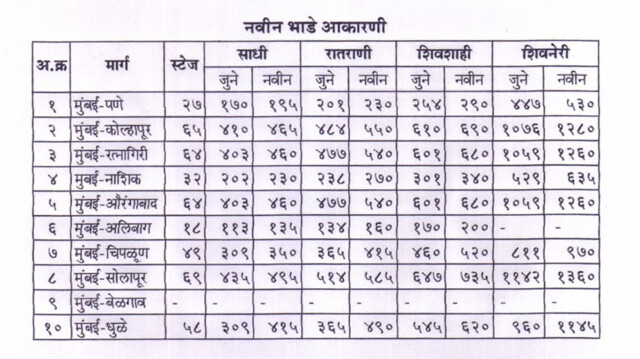 नवीन भाडे आकारणी
अ.क्र मार्ग स्टेज साधी रातराणी शिवशाही शिवनेरी
जुने नवीन जुने नवीन जुने नवीन जुने नवीन
१ मुंबई-पणे २७ १७० १९५ २०१ २३० २५४ २९० ४४७ ५३०
२ मुंबई-कोल्हापूर ६५ ४१० ४६५ ४८४ ५५० ६१० ६९० १०७६ १२८०
३ मुंबई-रत्नागिरी ६४ ४०३ ४६० ४७७ ५४० ६०१ ६८० १०५९ १२६०
४ मुंबई-नाशिक ३२ २०२ २३० २३८ २७० ३०१ ३४० ५२९ ६३५
५ मुंबई-औरंगाबाद ६४ ४०३ ४६० ४७७ ५४० ६०१ ६८० १०५९ १२६०
६ मुंबई-अलिबाग १८ ११३ १३५ १३४ १६० १७० २०० - -
७ मुंबई-चिपळूण ४९ ३०९ ३५० ३६५ ४१५ ४६० ५२० ८११ ९७०
८ मुंबई-सोलापूर ६९ ४३५ ४९५ ५१४ ५८५ ६४७ ७३५ ११४२ १३६०
९ मुंबई-बेळगाव - - - - - - - - -
१० मुंबई-धुळे ५८ ३०९ ४१५ ३६५ ४९० ५४५ ६२० ९६० ११४५